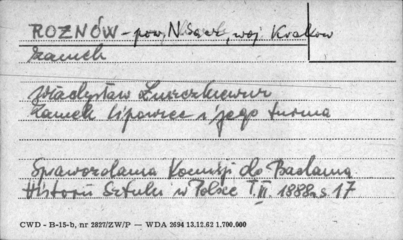 ROZNÓW - pow, N. Sącz, woj Krakow
Zamek
Władysław Łuszczkiewicz
Zamek Lipowiec i jego turma
Sprawozdania Komisji do Badania
Historii Sztuki w Polsce T. II. 1888, s 17
CWD - B-15-b, nr 2827/ZW/P — WDA 2694 13.12.62 1.700.000